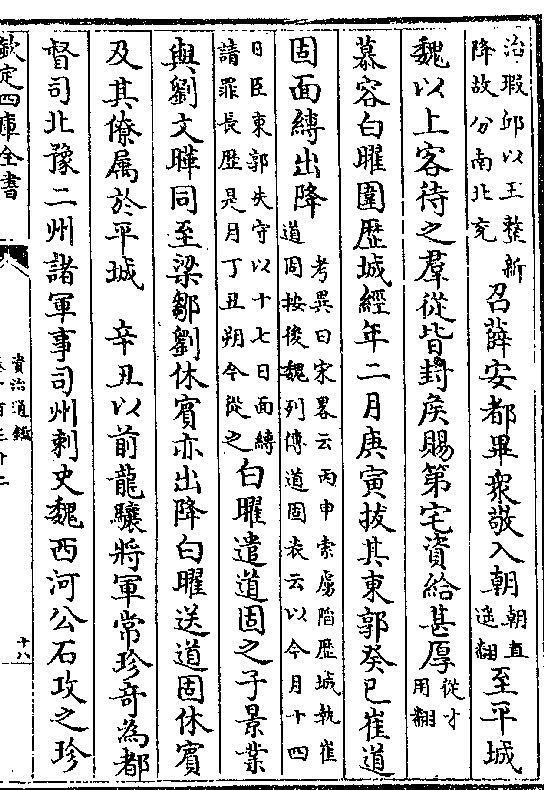 治瑕邱以王整新
降故分南北兖
召薛安都畢衆敬入朝
朝直
遥翻
至平城
魏以上客待之羣從皆封侯賜第宅資給甚厚
從才
用翻
慕容白曜圍歴城經年二月庚寅拔其東郭癸巳崔道
固面縛出降
考異曰宋畧云丙申索虜陷歴城執崔
道固按後魏列傳道固表云以今月十四
日臣東郭失守以十七日面縛
請罪長歴是月丁丑朔今從之
白曜遣道固之子景業
與劉文曄同至梁鄒劉休賓亦出降白曜送道固休賓
及其僚属於平城 辛丑以前龍驤將軍常珍奇為都
督司北豫二州諸軍事司州刺史魏西河公石攻之珍
欽定四庫全書
資治通鑑
卷一百三十二
十八